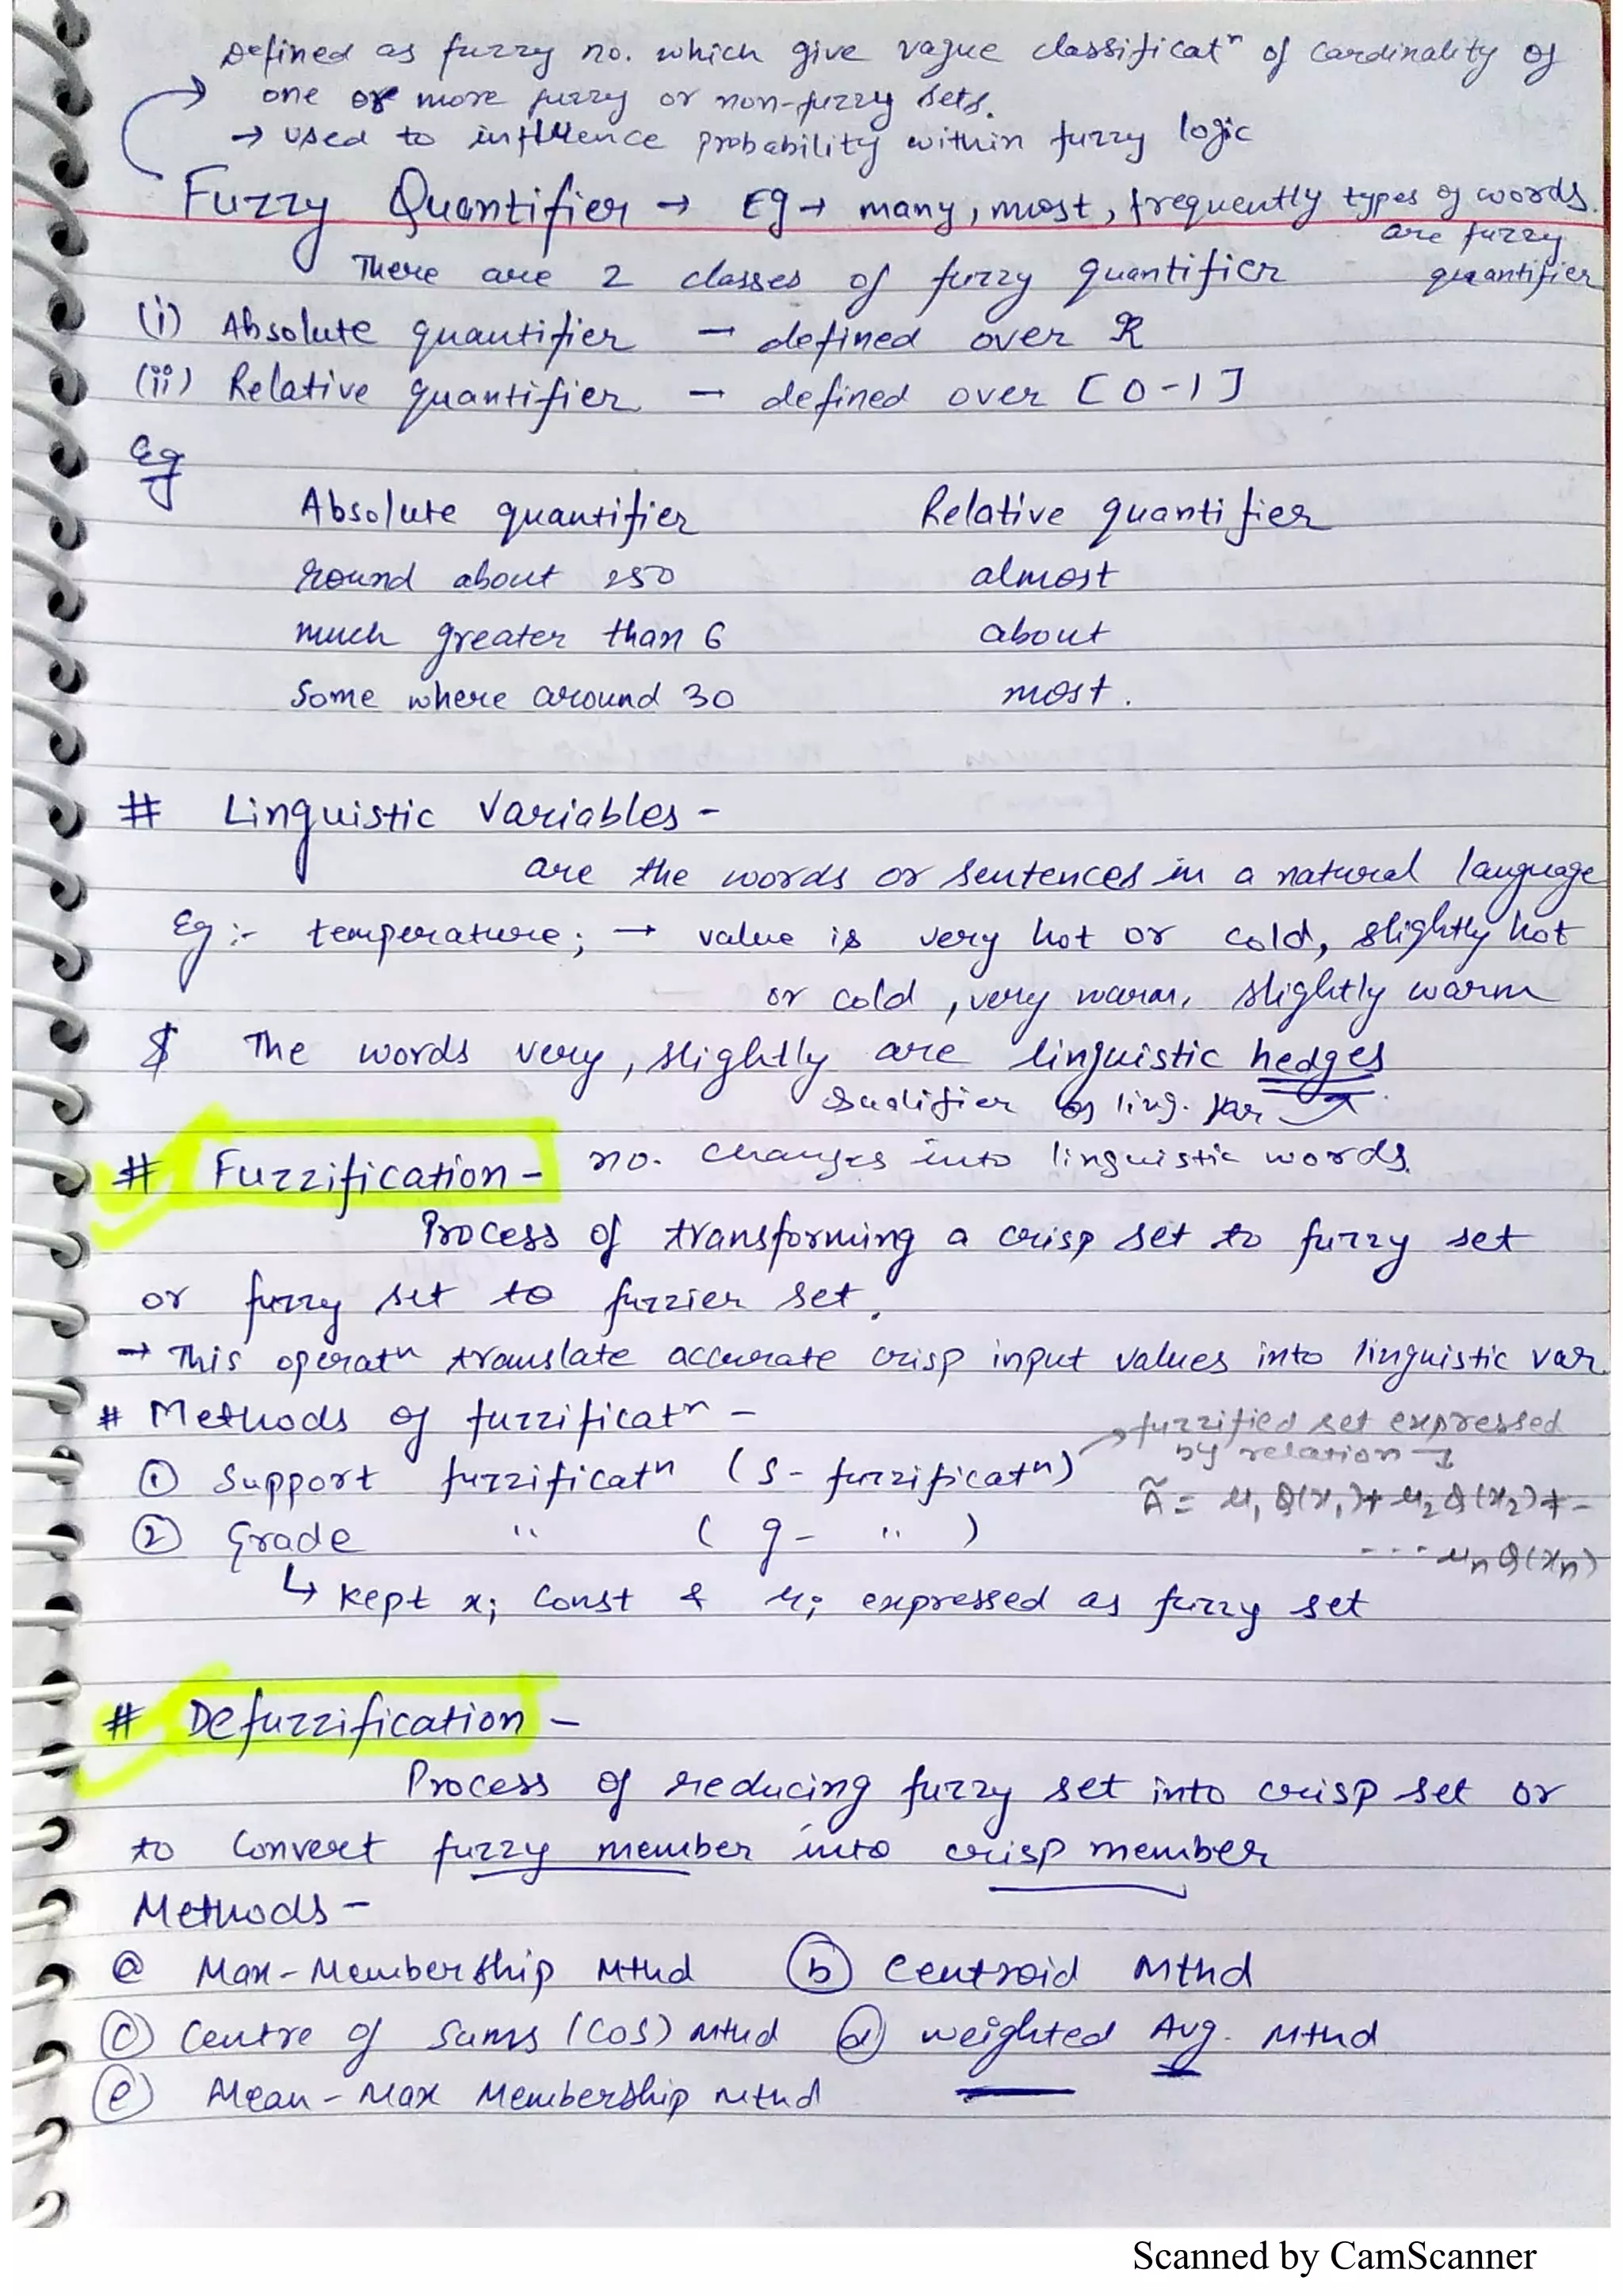 Defined as fuzzy no. which give vague classificatⁿ of cardinality of
one or more fuzzy or non-fuzzy sets.
→ used to influence probability within fuzzy logic
Fuzzy Quantifier → Eg → many, most, frequently types of words.
are fuzzy
quantifier
There are 2 classes of fuzzy quantifier
(i) Absolute quantifier — defined over R
(ii) Relative quantifier — defined over [0-1]
Eg
Absolute quantifier Relative quantifier
round about 250 almost
much greater than 6 about
Some where around 30 most.
# Linguistic Variables -
are the words or sentences in a natural language
Eg :- temperature; → value is very hot or cold, slightly hot
or cold, very warm, slightly warm
$ The words very, slightly are linguistic hedges
Qualifier of ling. var
# Fuzzification - no. changes into linguistic words.
Process of transforming a crisp set to fuzzy set
or fuzzy set to fuzzier set.
→ This operatⁿ translate accurate crisp input values into linguistic var
# Methods of fuzzificatⁿ -
→ fuzzified set expressed
by relation ↓
① Support fuzzificatⁿ (S - fuzzificatⁿ)
Ã = μ₁ Q(x₁) + μ₂ Q(x₂) + -
② Grade " (g - " )
---- μₙ Q(xₙ)
↳ kept xᵢ const & μᵢ expressed as fuzzy set
# Defuzzification -
Process of reducing fuzzy set into crisp set or
to convert fuzzy member into crisp member
Methods -
ⓐ Max-Membership Mthd ⓑ Centroid Mthd
ⓒ Centre of Sums (COS) Mthd ⓓ weighted Avg. Mthd
ⓔ Mean-Max Membership Mthd
Scanned by CamScanner